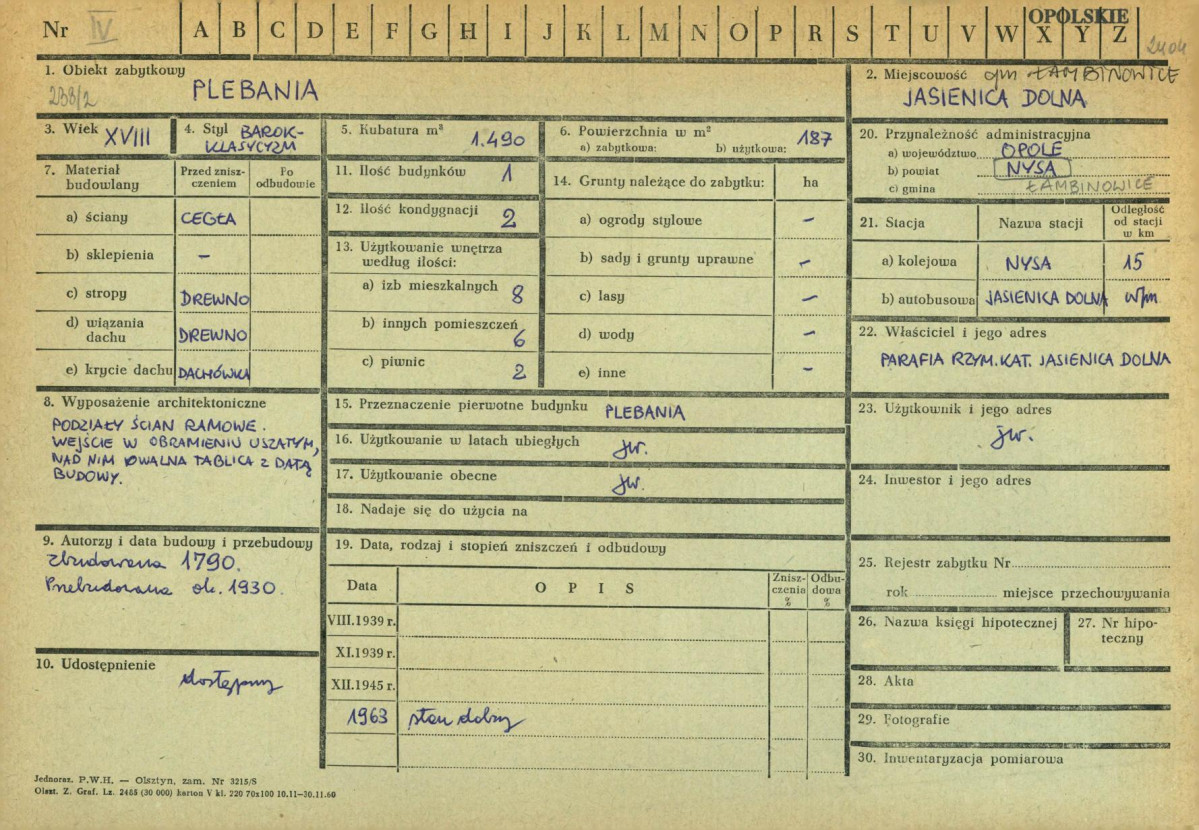 Nr IV A B C D E F G H I J K L M N O P R S T U V W X Y Z
OPOLSKIE
2404
1. Obiekt zabytkowy
233/2
PLEBANIA
2. Miejscowość gm ŁAMBINOWICE
JASIENICA DOLNA
3. Wiek XVIII
4. Styl BAROK-
KLASYCYZM
5. Kubatura m³
1.490
6. Powierzchnia w m²
a) zabytkowa: b) użytkowa: 187
7. Materiał
budowlany
Przed znisz-
czeniem
Po
odbudowie
a) ściany CEGŁA
b) sklepienia –
c) stropy DREWNO
d) wiązania
dachu DREWNO
e) krycie dachu DACHÓWKA
8. Wyposażenie architektoniczne
PODZIAŁY ŚCIAN RAMOWE.
WEJŚCIE W OBRAMIENIU USZATYM,
NAD NIM OWALNA TABLICA Z DATĄ
BUDOWY.
9. Autorzy i data budowy i przebudowy
Zbudowana 1790.
Przebudowana ok. 1930.
10. Udostępnienie
dostępny
11. Ilość budynków 1
12. Ilość kondygnacji 2
13. Użytkowanie wnętrza
według ilości:
a) izb mieszkalnych 8
b) innych pomieszczeń 6
c) piwnic 2
14. Grunty należące do zabytku: ha
a) ogrody stylowe –
b) sady i grunty uprawne –
c) lasy –
d) wody –
e) inne –
15. Przeznaczenie pierwotne budynku PLEBANIA
16. Użytkowanie w latach ubiegłych jw.
17. Użytkowanie obecne jw.
18. Nadaje się do użycia na
19. Data, rodzaj i stopień zniszczeń i odbudowy
Data O P I S Znisz-
czenia
% Odbu-
dowa
%
VIII.1939 r.
XI.1939 r.
XII.1945 r.
1963 stan dobry
20. Przynależność administracyjna
a) województwo OPOLE
b) powiat NYSA
c) gmina ŁAMBINOWICE
21. Stacja Nazwa stacji Odległość
od stacji
w km
a) kolejowa NYSA 15
b) autobusowa JASIENICA DOLNA w/m.
22. Właściciel i jego adres
PARAFIA RZYM.KAT. JASIENICA DOLNA
23. Użytkownik i jego adres
jw.
24. Inwestor i jego adres
25. Rejestr zabytku Nr
rok miejsce przechowywania
26. Nazwa księgi hipotecznej
27. Nr hipo-
teczny
28. Akta
29. Fotografie
30. Inwentaryzacja pomiarowa
Jednoraz. P.W.H. — Olsztyn, zam. Nr 3215/S
Olszt. Z. Graf. Lz. 2485 (30 000) karton V kl. 220 70x100 10.11—30.11.60